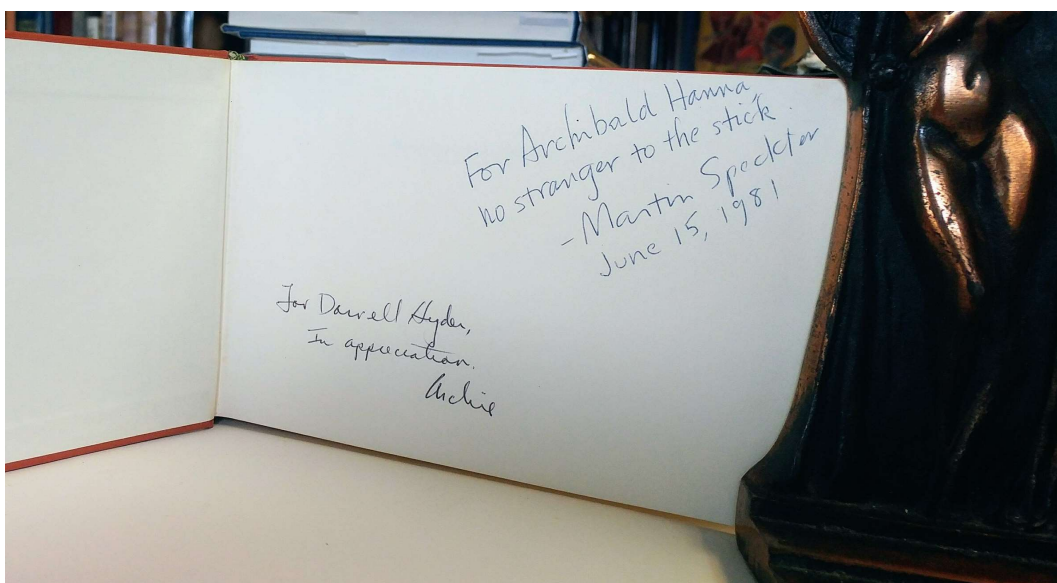 For Archibald Hanna,
no stranger to the stick.
- Martin Speckter
June 15, 1981
For Darrell Hyder,
In appreciation.
Archie